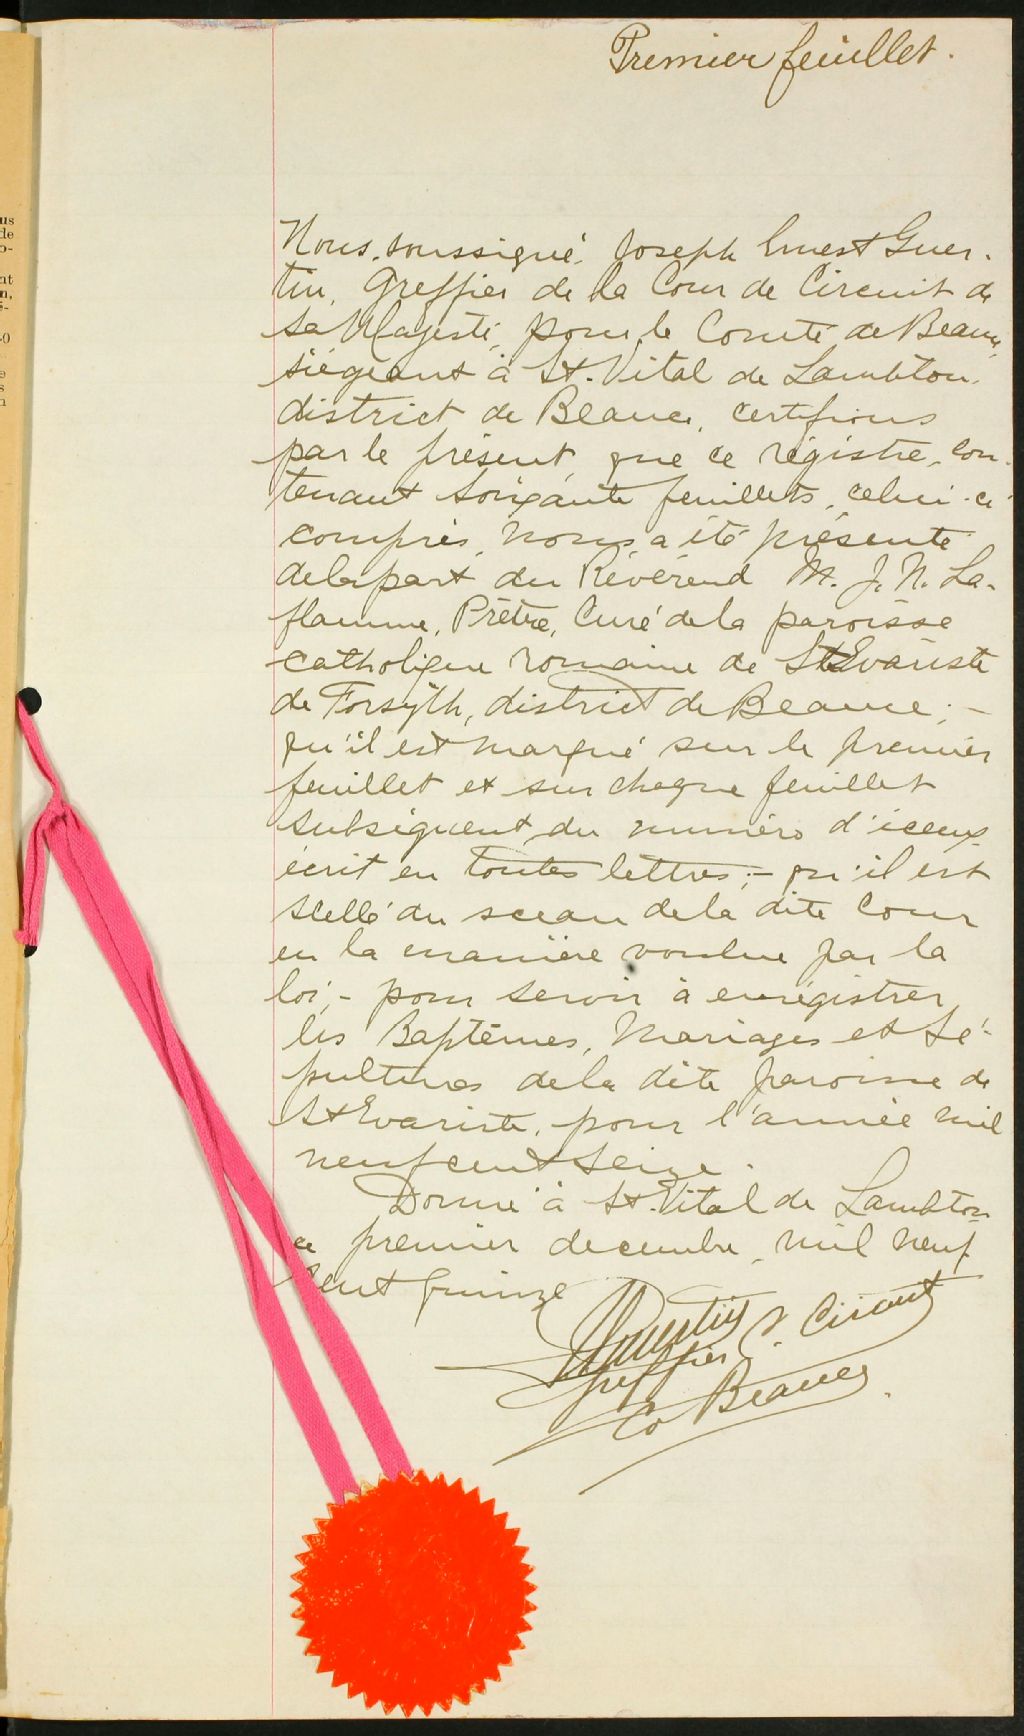 Premier feuillet.
us
de
o-
nt
n,
s-
40
e
s
n
Nous, soussigné, Joseph Ernest Guer-
tin, Greffier de la Cour de Circuit de
Sa Majesté, pour le Comté de Beauce,
siégeant à St. Vital de Lambton,
district de Beauce, certifions
par le présent, que ce régistre, con-
tenant soixante feuillets, celui-ci
compris, nous a été présenté
de la part du Révérend M. J. N. La-
flamme, Prêtre, Curé de la paroisse
catholique romaine de St Evariste
de Forsyth, district de Beauce; -
qu'il est marqué sur le premier
feuillet et sur chaque feuillet
subséquent, du numéro d'iceux
écrit en toutes lettres; - qu'il est
scellé du sceau de la dite Cour
en la manière voulue par la
loi, - pour servir à enrégistrer
les Baptêmes, Mariages et Sé-
pultures de la dite paroisse de
St Evariste, pour l'année mil
neuf cent seize.
Donné à St. Vital de Lambton
ce premier decembre, mil neuf
cent quinze
Guertin
Greffier C. Circuit
Co Beauce.